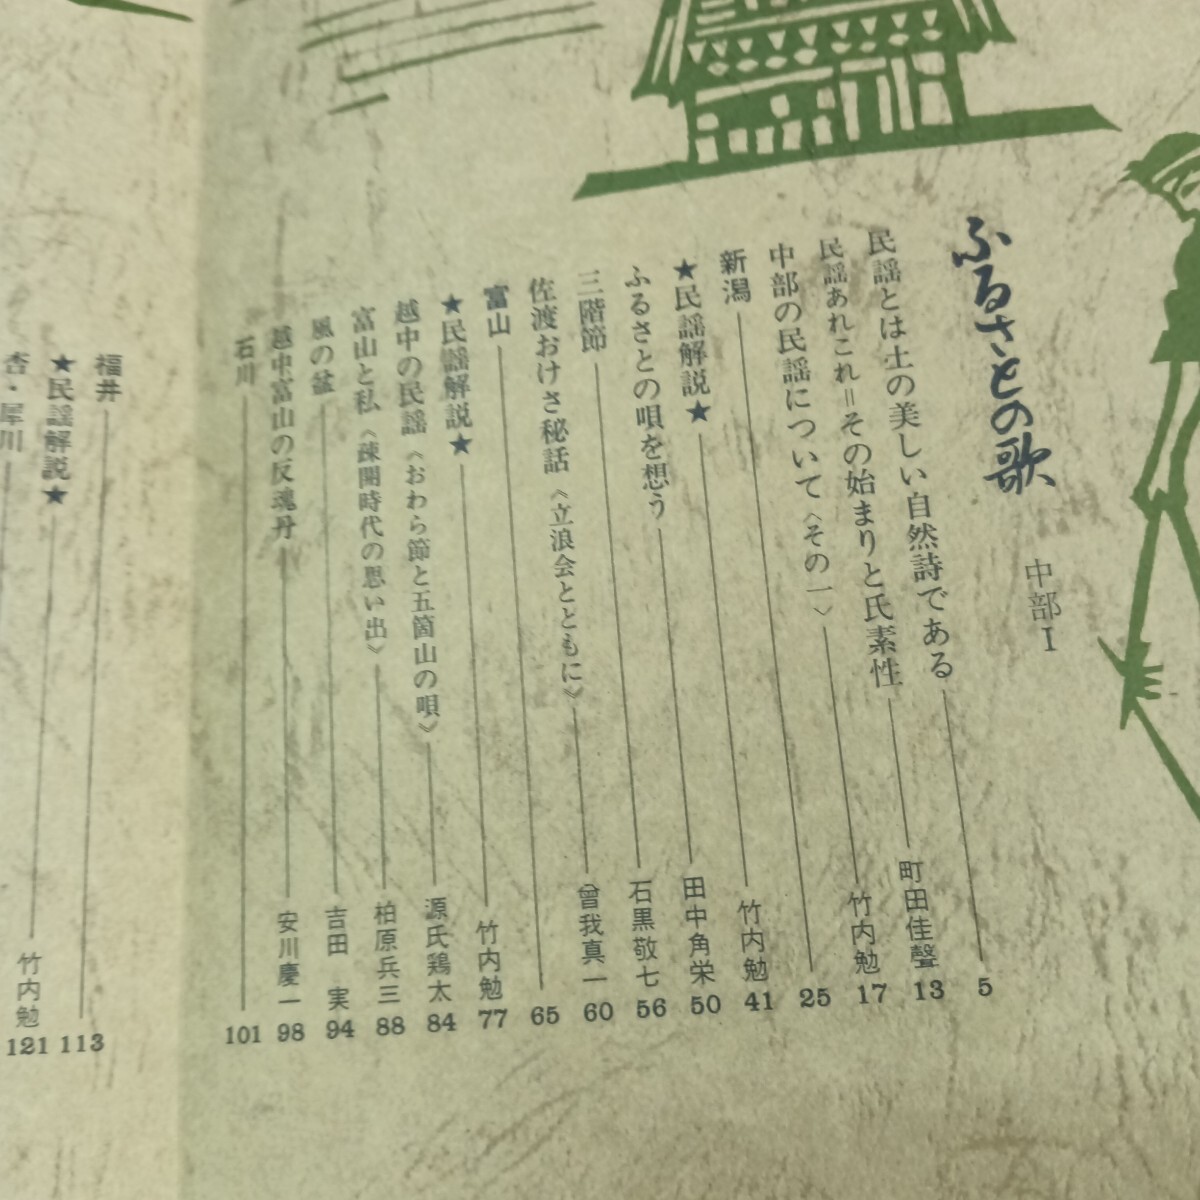 ふるさとの歌 中部I
民謡とは土の美しい自然詩である 5
民謡あれこれ＝その始まりと氏素性 町田佳聲 13
中部の民謡について〈その一〉 竹内勉 17
新潟 25
★民謡解説★ 竹内勉 41
ふるさとの唄を想う 田中角栄 50
三階節 石黒敬七 56
佐渡おけさ秘話《立浪会とともに》 曾我真一 60
富山 65
★民謡解説★ 竹内勉 77
越中の民謡《おわら節と五箇山の唄》 源氏鶏太 84
富山と私《疎開時代の思い出》 柏原兵三 88
風の盆 吉田 実 94
越中富山の反魂丹 安川慶一 98
石川 101
福井 113
★民謡解説★ 竹内勉 121
杏・犀川